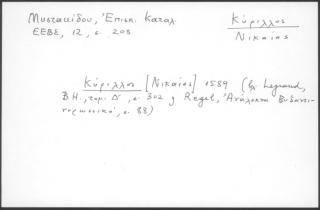 Μυστακίδου, Ἐπισκ. Καταλ.
ΕΕΒΣ, 12, σ. 208
Κύριλλος
Νικαίας
Κύριλλος [Νικαίας] 1589 (βλ. Legrand,
B.H., τομ. Δ', σ. 302 Regel, Ἀνάλεκτα Βυζαντι-
νορωσσικά, σ. 88)